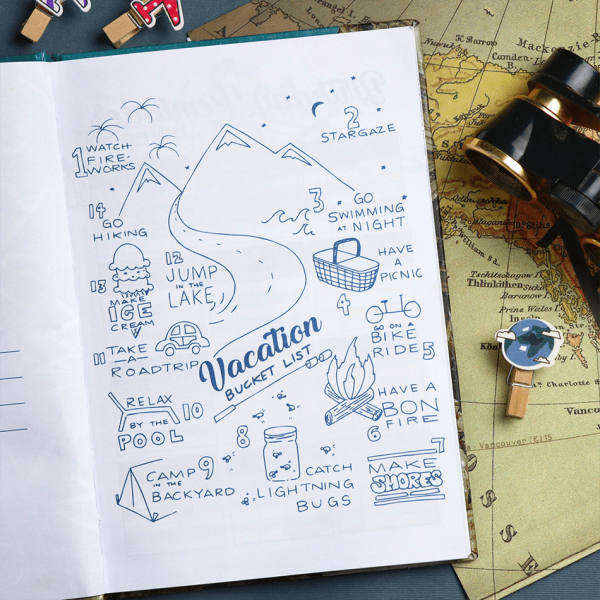 1 WATCH
FIRE-
WORKS
2
STARGAZE
3 GO
SWIMMING
AT NIGHT
HAVE
A
PICNIC
4
GO ON A
BIKE
RIDE 5
HAVE A
BON
FIRE
6
7
MAKE
SMORES
8
CATCH
LIGHTNING
BUGS
CAMP 9
IN THE
BACKYARD
RELAX 10
BY THE
POOL
11 TAKE
A
ROADTRIP
12
JUMP
IN THE
LAKE
13
MAKE
ICE
CREAM
14
GO
HIKING
Vacation
BUCKET LIST
Nuwuk
Barrow
Camden-
Mackenzie
Thlinkithen
Baranow I.
Charlotte
Vancouver (E.) 15
Vancou
S
S